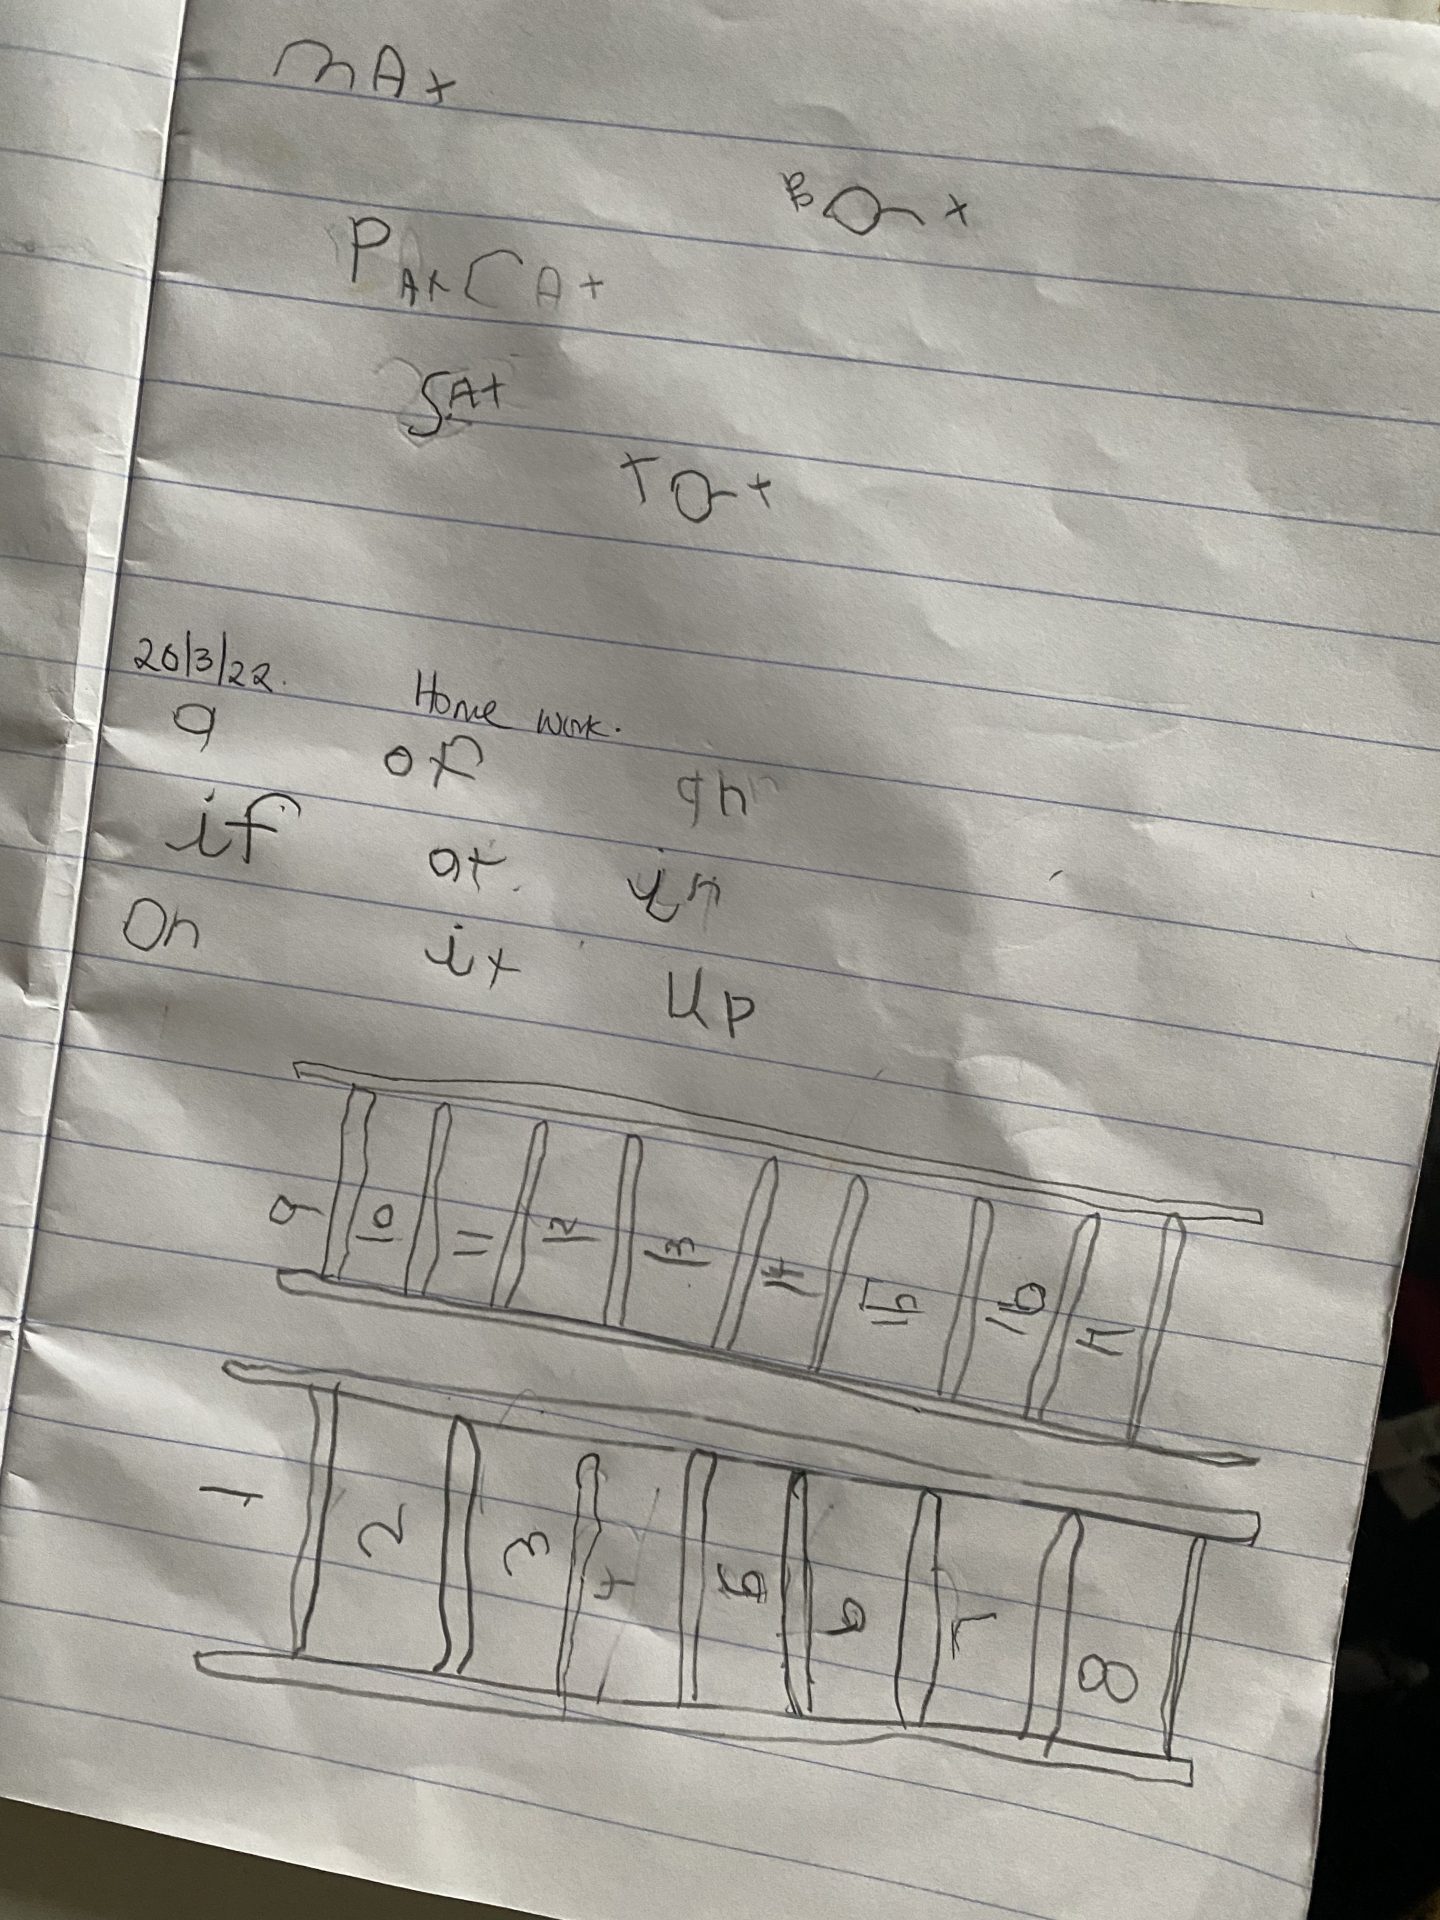 mAt
Box
PAt CAt
SAt
TOt
20/3/22. Home work.
a of an
if at in
On it up
9 10 11 12 13 14 15 16 17
1 2 3 4 5 6 7 8